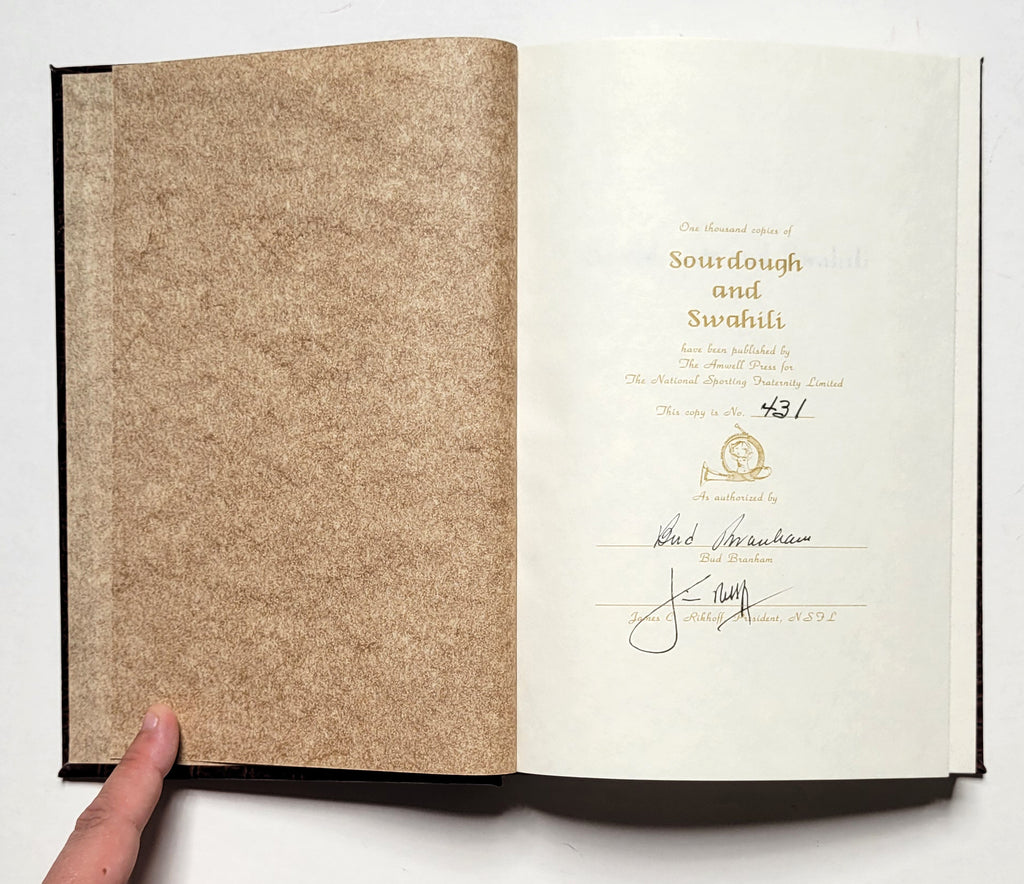 One thousand copies of
Sourdough
and
Swahili
have been published by
The Amwell Press for
The National Sporting Fraternity Limited
This copy is No. 431
As authorized by
Bud Branham
Bud Branham
James C. Rikhoff, President, NSFL